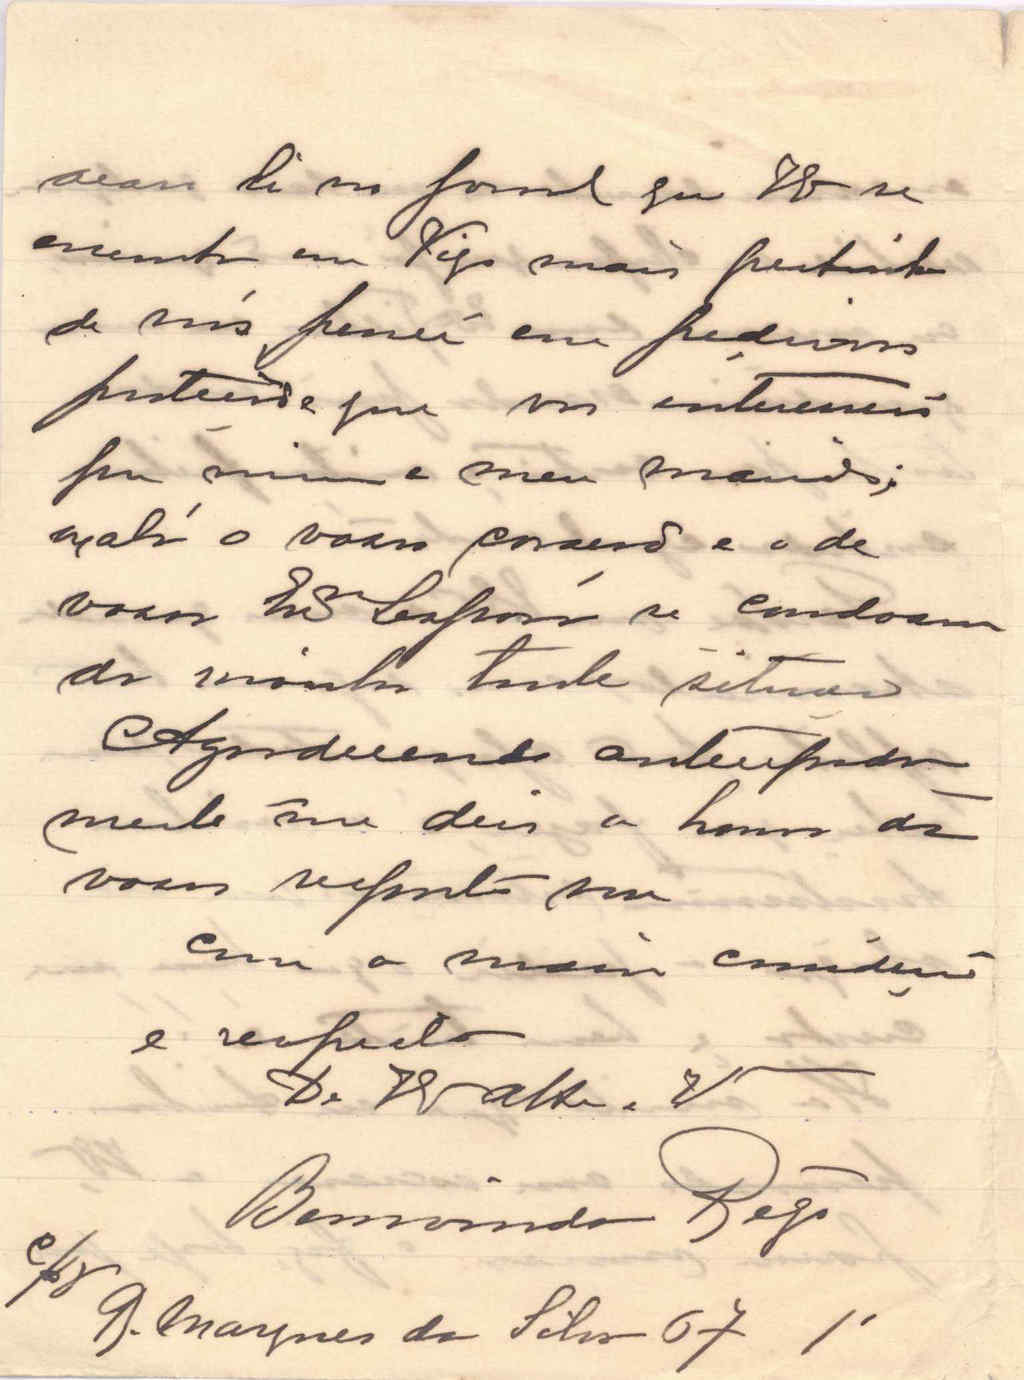 li no Jornal que VE se
encontra em Vigo mais pertinho
de nós pensei em pedirvos
protecção e que vos interesseis
por mim e meu marido;
oxalá o vosso coração e o de
vossa Exª Espoza se condoam
da minha triste situação
Agradecendo antecipada
mente me deis a honra da
vossa resposta sou
com a maior consideração
e respeito
De VE Attª e Vª
Bemvinda Rêgo
R. Marques da Silva 67 1º